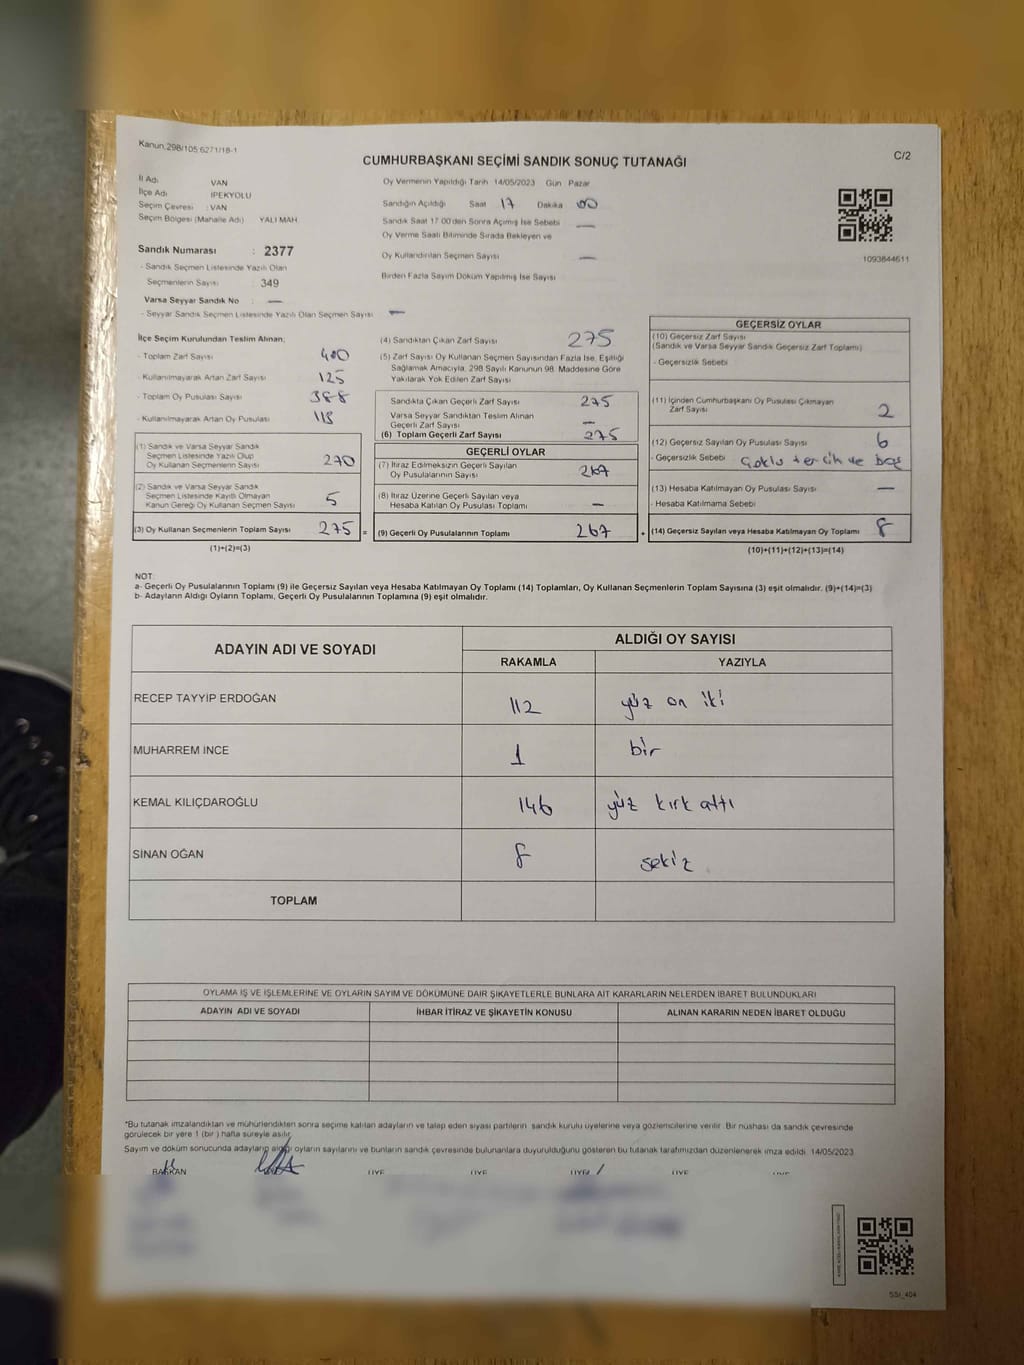 Kanun.298/105 6271/18-1
CUMHURBAŞKANI SEÇİMİ SANDIK SONUÇ TUTANAĞI
C/2
İl Adı VAN
İlçe Adı İPEKYOLU
Seçim Çevresi : VAN
Seçim Bölgesi (Mahalle Adı) YALI MAH.
Sandık Numarası : 2377
- Sandık Seçmen Listesinde Yazılı Olan
Seçmenlerin Sayısı : 349
Varsa Seyyar Sandık No : —
- Seyyar Sandık Seçmen Listesinde Yazılı Olan Seçmen Sayısı —
Oy Vermenin Yapıldığı Tarih 14/05/2023 Gün Pazar
Sandığın Açıldığı Saat 17 Dakika 00
Sandık Saat 17:00'den Sonra Açılmış İse Sebebi —
Oy Verme Saati Bitiminde Sırada Bekleyen ve
Oy Kullandırılan Seçmen Sayısı —
Birden Fazla Sayım Döküm Yapılmış İse Sayısı
1093844611
İlçe Seçim Kurulundan Teslim Alınan;
- Toplam Zarf Sayısı 400
- Kullanılmayarak Artan Zarf Sayısı 125
- Toplam Oy Pusulası Sayısı 388
- Kullanılmayarak Artan Oy Pusulası 113
(1) Sandık ve Varsa Seyyar Sandık
Seçmen Listesinde Yazılı Olup
Oy Kullanan Seçmenlerin Sayısı 270
(2) Sandık ve Varsa Seyyar Sandık
Seçmen Listesinde Kayıtlı Olmayan
Kanun Gereği Oy Kullanan Seçmen Sayısı 5
(3) Oy Kullanan Seçmenlerin Toplam Sayısı 275 =
(1)+(2)=(3)
(4) Sandıktan Çıkan Zarf Sayısı 275
(5) Zarf Sayısı Oy Kullanan Seçmen Sayısından Fazla İse, Eşitliği
Sağlamak Amacıyla, 298 Sayılı Kanunun 98. Maddesine Göre
Yakılarak Yok Edilen Zarf Sayısı
Sandıkta Çıkan Geçerli Zarf Sayısı 275
Varsa Seyyar Sandıktan Teslim Alınan
Geçerli Zarf Sayısı —
(6) Toplam Geçerli Zarf Sayısı 275
GEÇERLİ OYLAR
(7) İtiraz Edilmeksizin Geçerli Sayılan
Oy Pusulalarının Sayısı 267
(8) İtiraz Üzerine Geçerli Sayılan veya
Hesaba Katılan Oy Pusulası Toplamı —
(9) Geçerli Oy Pusulalarının Toplamı 267 +
GEÇERSİZ OYLAR
(10) Geçersiz Zarf Sayısı
(Sandık ve Varsa Seyyar Sandık Geçersiz Zarf Toplamı)
- Geçersizlik Sebebi
(11) İçinden Cumhurbaşkanı Oy Pusulası Çıkmayan
Zarf Sayısı 2
(12) Geçersiz Sayılan Oy Pusulası Sayısı 6
- Geçersizlik Sebebi Çoklu tercih ve boş
(13) Hesaba Katılmayan Oy Pusulası Sayısı —
- Hesaba Katılmama Sebebi
(14) Geçersiz Sayılan veya Hesaba Katılmayan Oy Toplamı 8
(10)+(11)+(12)+(13)=(14)
NOT:
a- Geçerli Oy Pusulalarının Toplamı (9) ile Geçersiz Sayılan veya Hesaba Katılmayan Oy Toplamı (14) Toplamları, Oy Kullanan Seçmenlerin Toplam Sayısına (3) eşit olmalıdır. (9)+(14)=(3)
b- Adayların Aldığı Oyların Toplamı, Geçerli Oy Pusulalarının Toplamına (9) eşit olmalıdır.
ADAYIN ADI VE SOYADI ALDIĞI OY SAYISI
RAKAMLA YAZIYLA
RECEP TAYYİP ERDOĞAN 112 yüz on iki
MUHARREM İNCE 1 bir
KEMAL KILIÇDAROĞLU 146 yüz kırk altı
SİNAN OĞAN 8 sekiz
TOPLAM
OYLAMA İŞ VE İŞLEMLERİNE VE OYLARIN SAYIM VE DÖKÜMÜNE DAİR ŞİKAYETLERLE BUNLARA AİT KARARLARIN NELERDEN İBARET BULUNDUKLARI
ADAYIN ADI VE SOYADI İHBAR İTİRAZ VE ŞİKAYETİN KONUSU ALINAN KARARIN NEDEN İBARET OLDUĞU
*Bu tutanak imzalandıktan ve mühürlendikten sonra seçime katılan adayların ve talep eden siyasi partilerin sandık kurulu üyelerine veya gözlemcilerine verilir. Bir nüshası da sandık çevresinde
görülecek bir yere 1 (bir ) hafta süreyle asılır.
Sayım ve döküm sonucunda adayların aldığı oyların sayılarını ve bunların sandık çevresinde bulunanlara duyurulduğunu gösteren bu tutanak tarafımızdan düzenlenerek imza edildi. 14/05/2023
BAŞKAN ÜYE ÜYE ÜYE ÜYE ÜYE
SSİ_404